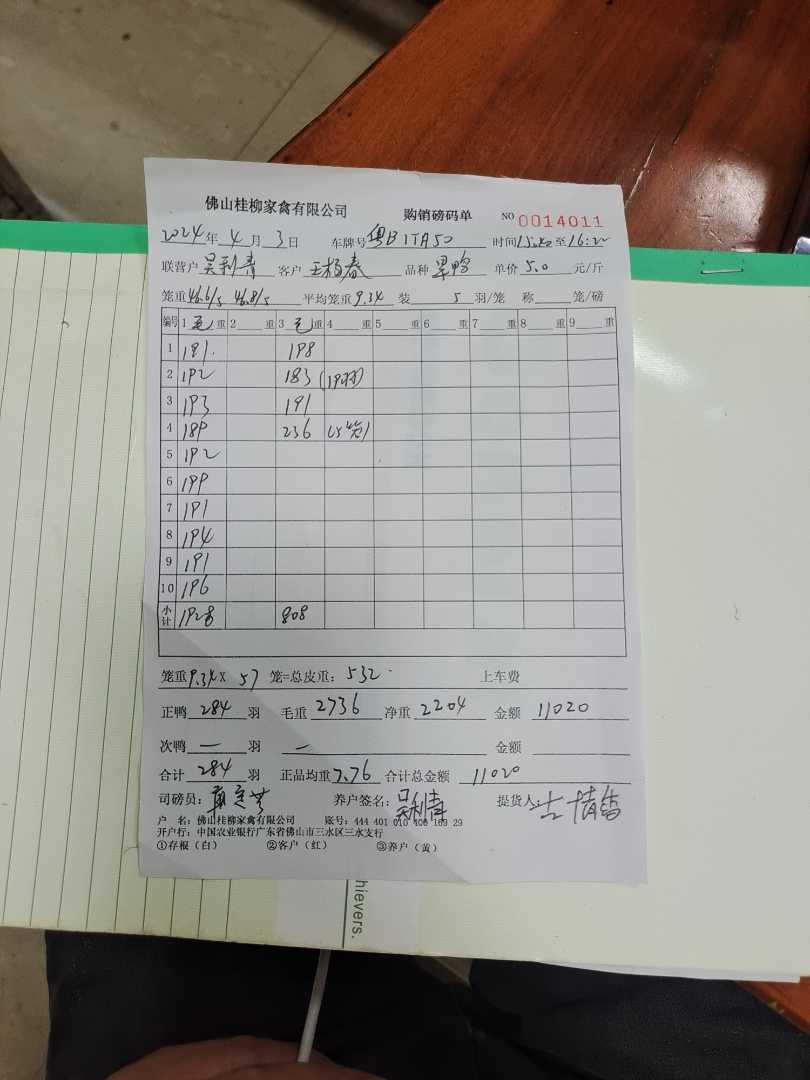 佛山桂柳家禽有限公司 购销磅码单 NO 0014011
2024年 4月 3日 车牌号 粤B1TA50 时间 至16:20
联营户 吴利青 客户 王杨春 品种 单价 5.0 元/斤
笼重46.6/5 46.8/5 平均笼重9.34 装 5 羽/笼 称 笼/磅
编号 1 毛 重 2 重 3 毛 重 4 重 5 重 6 重 7 重 8 重 9 重
1 191. 198
2 192 183 (19羽)
3 193 191
4 189 236 (5笼)
5 192
6 199
7 191
8 194
9 191
10 196
小计 1928 808
笼重9.34× 57 笼=总皮重: 532 上车费
正鸭 284 羽 毛重 2736 净重 2204 金额 11020
次鸭 — 羽 — 金额
合计 284 羽 正品均重7.76 合计总金额 11020
司磅员: 养户签名: 吴利青 提货人:
户 名: 佛山桂柳家禽有限公司 账号: 444 401 010 400 169 29
开户行: 中国农业银行广东省佛山市三水区三水支行
①存根(白) ②客户(红) ③养户(黄)
hievers.